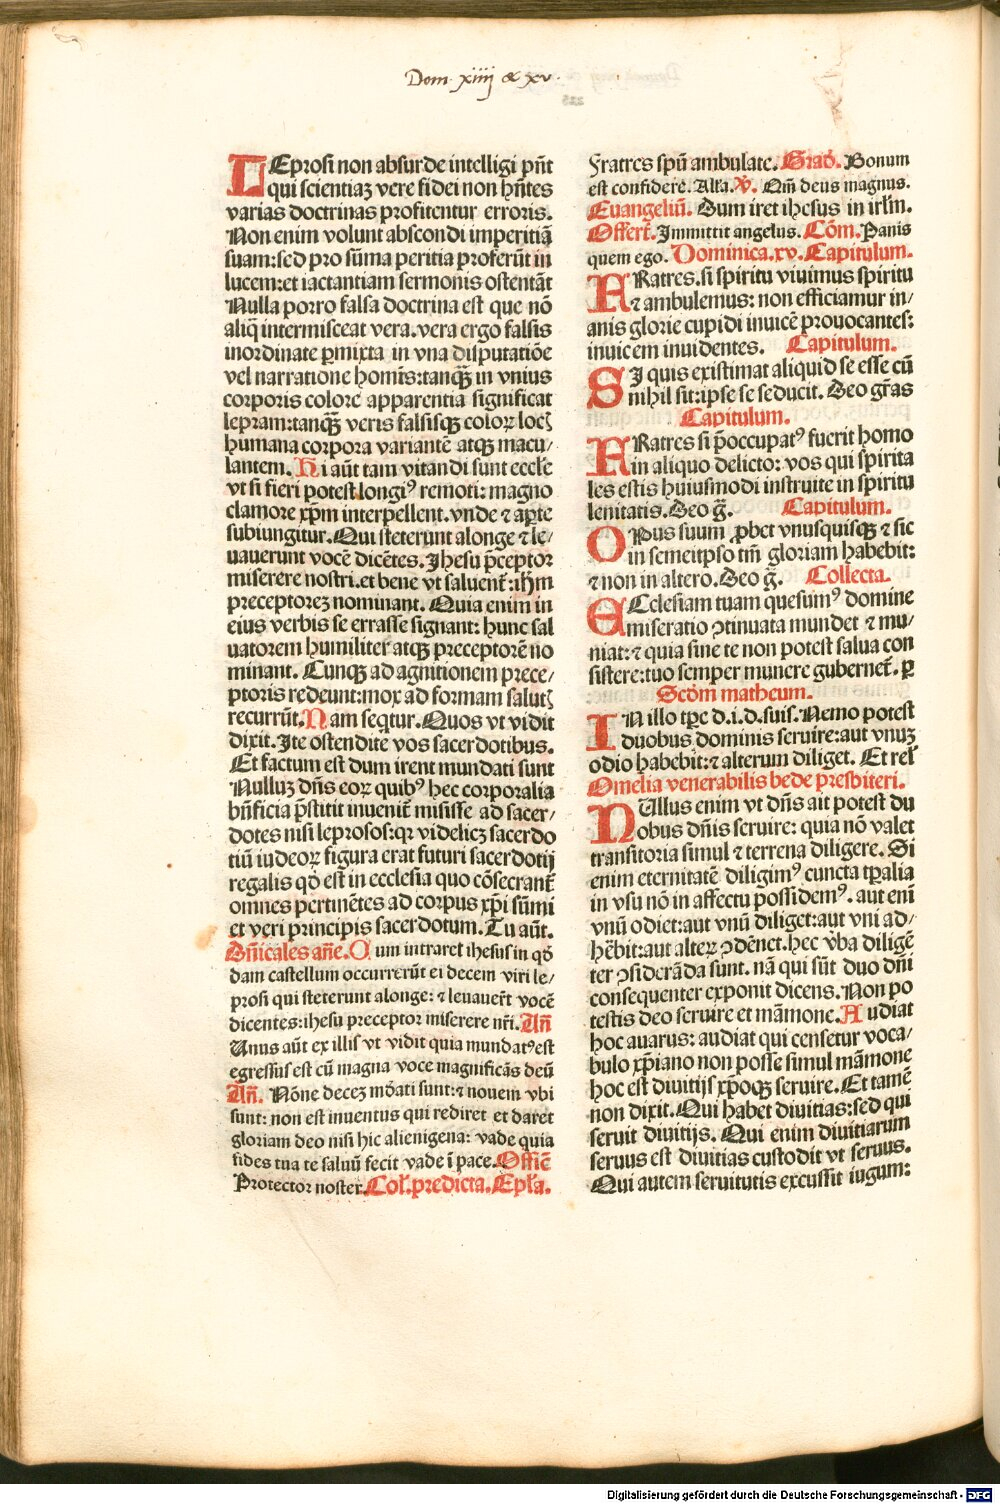 Dom. xiiij & xv.
LEprosi non absurde intelligi pn̄t
qui scientiaꝫ vere fidei non hn̄tes
varias doctrinas profitentur erroris.
Non enim volunt abscondi imperitiā
suam: sed pro sūma peritia proferūt in
lucem: et iactantiam sermonis ostentāt
Nulla porro falsa doctrina est que nō
aliq̄ intermisceat vera. vera ergo falsis
inordinate ꝑmixta in vna disputatiōe
vel narratione homīs: tanqꝫ in vnius
corporis colore apparentia significat
lepram: tanqꝫ veris falsisqꝫ coloꝝ locꝭ
humana corpora variantē atqꝫ macu/
lantem. Hi aūt tam vitandi sunt eccl̄e
vt si fieri potest longiꝰ remoti: magno
clamore xp̄m interpellent. vnde ⁊ aꝑte
subiungitur. Qui steterunt alonge ⁊ le/
uauerunt vocē dicētes. Jhesu p̄ceptor
miserere nostri. et bene vt saluent̄: ih̄m
preceptoreꝫ nominant. Quia enim in
eius verbis se errasse signant: hunc sal
uatorem humiliter atqꝫ preceptorē no
minant. Cunqꝫ ad agnitionem prece/
ptoris redeunt: mox ad formam salutꝭ
recurrūt. Nam seqtur. Quos vt vidit
dixit. Ite ostendite vos sacerdotibus.
Et factum est dum irent mundati sunt
Nulluꝫ dn̄s eoꝝ quibꝰ hec corporalia
bn̄ficia p̄stitit inuenit̄ misisse ad sacer/
dotes nisi leprosos: qꝛ videlicꝫ sacerdo
tiū iudeoꝝ figura erat futuri sacerdotij
regalis qd̄ est in ecclesia quo cōsecrant̄
omnes pertinētes ad corpus xp̄i sūmi
et veri principis sacerdotum. Tu aūt.
Dn̄icales añe. Dum intraret ihesus in qd̄
dam castellum occurrerūt ei decem viri le/
prosi qui steterunt alonge: ⁊ leuauer̄t vocē
dicentes: ihesu preceptor miserere nr̄i. Añ
Unus aūt ex illis vt vidit quia mundatꝰ est
egressus est cū magna voce magnificās deū
Añ. Nōne deceꝫ mōati sunt: ⁊ nouem vbi
sunt: non est inuentus qui rediret et daret
gloriam deo nisi hic alienigena: vade quia
fides tua te saluū fecit vade ī pace. Offic̄
Protector noster. Col̄. predicta. Epl̄a.
Fratres spū ambulate. Grad̄. Bonum
est confidere. Alla. V̄. Qm̄ deus magnus.
Euangeliū. Dum iret ihesus in irl̄m.
Offert̄. Immittit angelus. Cōm. Panis
quem ego. Dominica. xv. Capitulum.
FRatres. si spiritu viuimus spiritu
⁊ ambulemus: non efficiamur in/
anis glorie cupidi inuicē prouocantes:
inuicem inuidentes. Capitulum.
SI quis existimat aliquid se esse cū
nihil sit: ipse se seducit. Deo gr̄as
Capitulum.
FRatres si p̄occupatꝰ fuerit homo
in aliquo delicto: vos qui spirita
les estis huiusmodi instruite in spiritu
lenitatis. Deo ḡ. Capitulum.
OPus suum ꝓbet vnusquisqꝫ ⁊ sic
in semeitpso tm̄ gloriam habebit:
⁊ non in altero. Deo ḡ. Collecta.
ECclesiam tuam quesumꝰ domine
miseratio ꝯtinuata mundet ⁊ mu/
niat: ⁊ quia sine te non potest salua con
sistere: tuo semper munere gubernet̄. ꝑ
Scd̄m matheum.
IN illo tꝑe d. i. d. suis. Nemo potest
duobus dominis seruire: aut vnuꝫ
odio habebit: ⁊ alterum diliget. Et rel̄
Omelia venerabilis bede presbiteri.
NUllus enim vt dn̄s ait potest du
obus dn̄is seruire: quia nō valet
transitoria simul ⁊ terrena diligere. Si
enim eternitatē diligimꝰ cuncta tꝑalia
in vsu nō in affectu possidemꝰ. aut enī
vnū odiet: aut vnū diliget: aut vni ad/
hēbit: aut alteꝝ ꝯdēnet. hec v̄ba diligē
ter ꝯsiderāda sunt. nā qui sūt duo dn̄i
consequenter exponit dicens. Non po
testis deo seruire et māmone. Audiat
hoc auarus: audiat qui censetur voca/
bulo xp̄iano non posse simul māmone
hoc est diuitijs xp̄oqꝫ seruire. Et tamē
non dixit. Qui habet diuitias: sed qui
seruit diuitijs. Qui enim diuitiarum
seruus est diuitias custodit vt seruus.
Qui autem seruitutis excussit iugum:
Digitalisierung gefördert durch die Deutsche Forschungsgemeinschaft - DFG